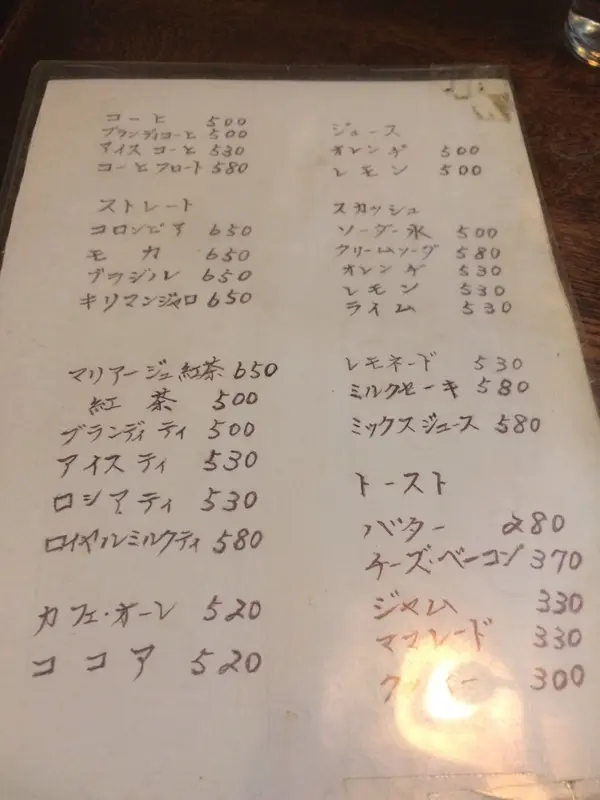 コーヒ 500
ブランディコーヒ 500
アイスコーヒ 530
コーヒフロート 580
ストレート
コロンビア 650
モカ 650
ブラジル 650
キリマンジャロ 650
マリアージュ紅茶 650
紅茶 500
ブランディティ 500
アイスティ 530
ロシアティ 530
ロイヤルミルクティ 580
カフェ・オーレ 520
ココア 520
ジュース
オレンヂ 500
レモン 500
スカッシュ
ソーダー水 500
クリームソーダ 580
オレンヂ 530
レモン 530
ライム 530
レモネード 530
ミルクセーキ 580
ミックスジュース 580
トースト
バター 280
チーズ・ベーコン 370
ジャム 330
ママレード 330
300